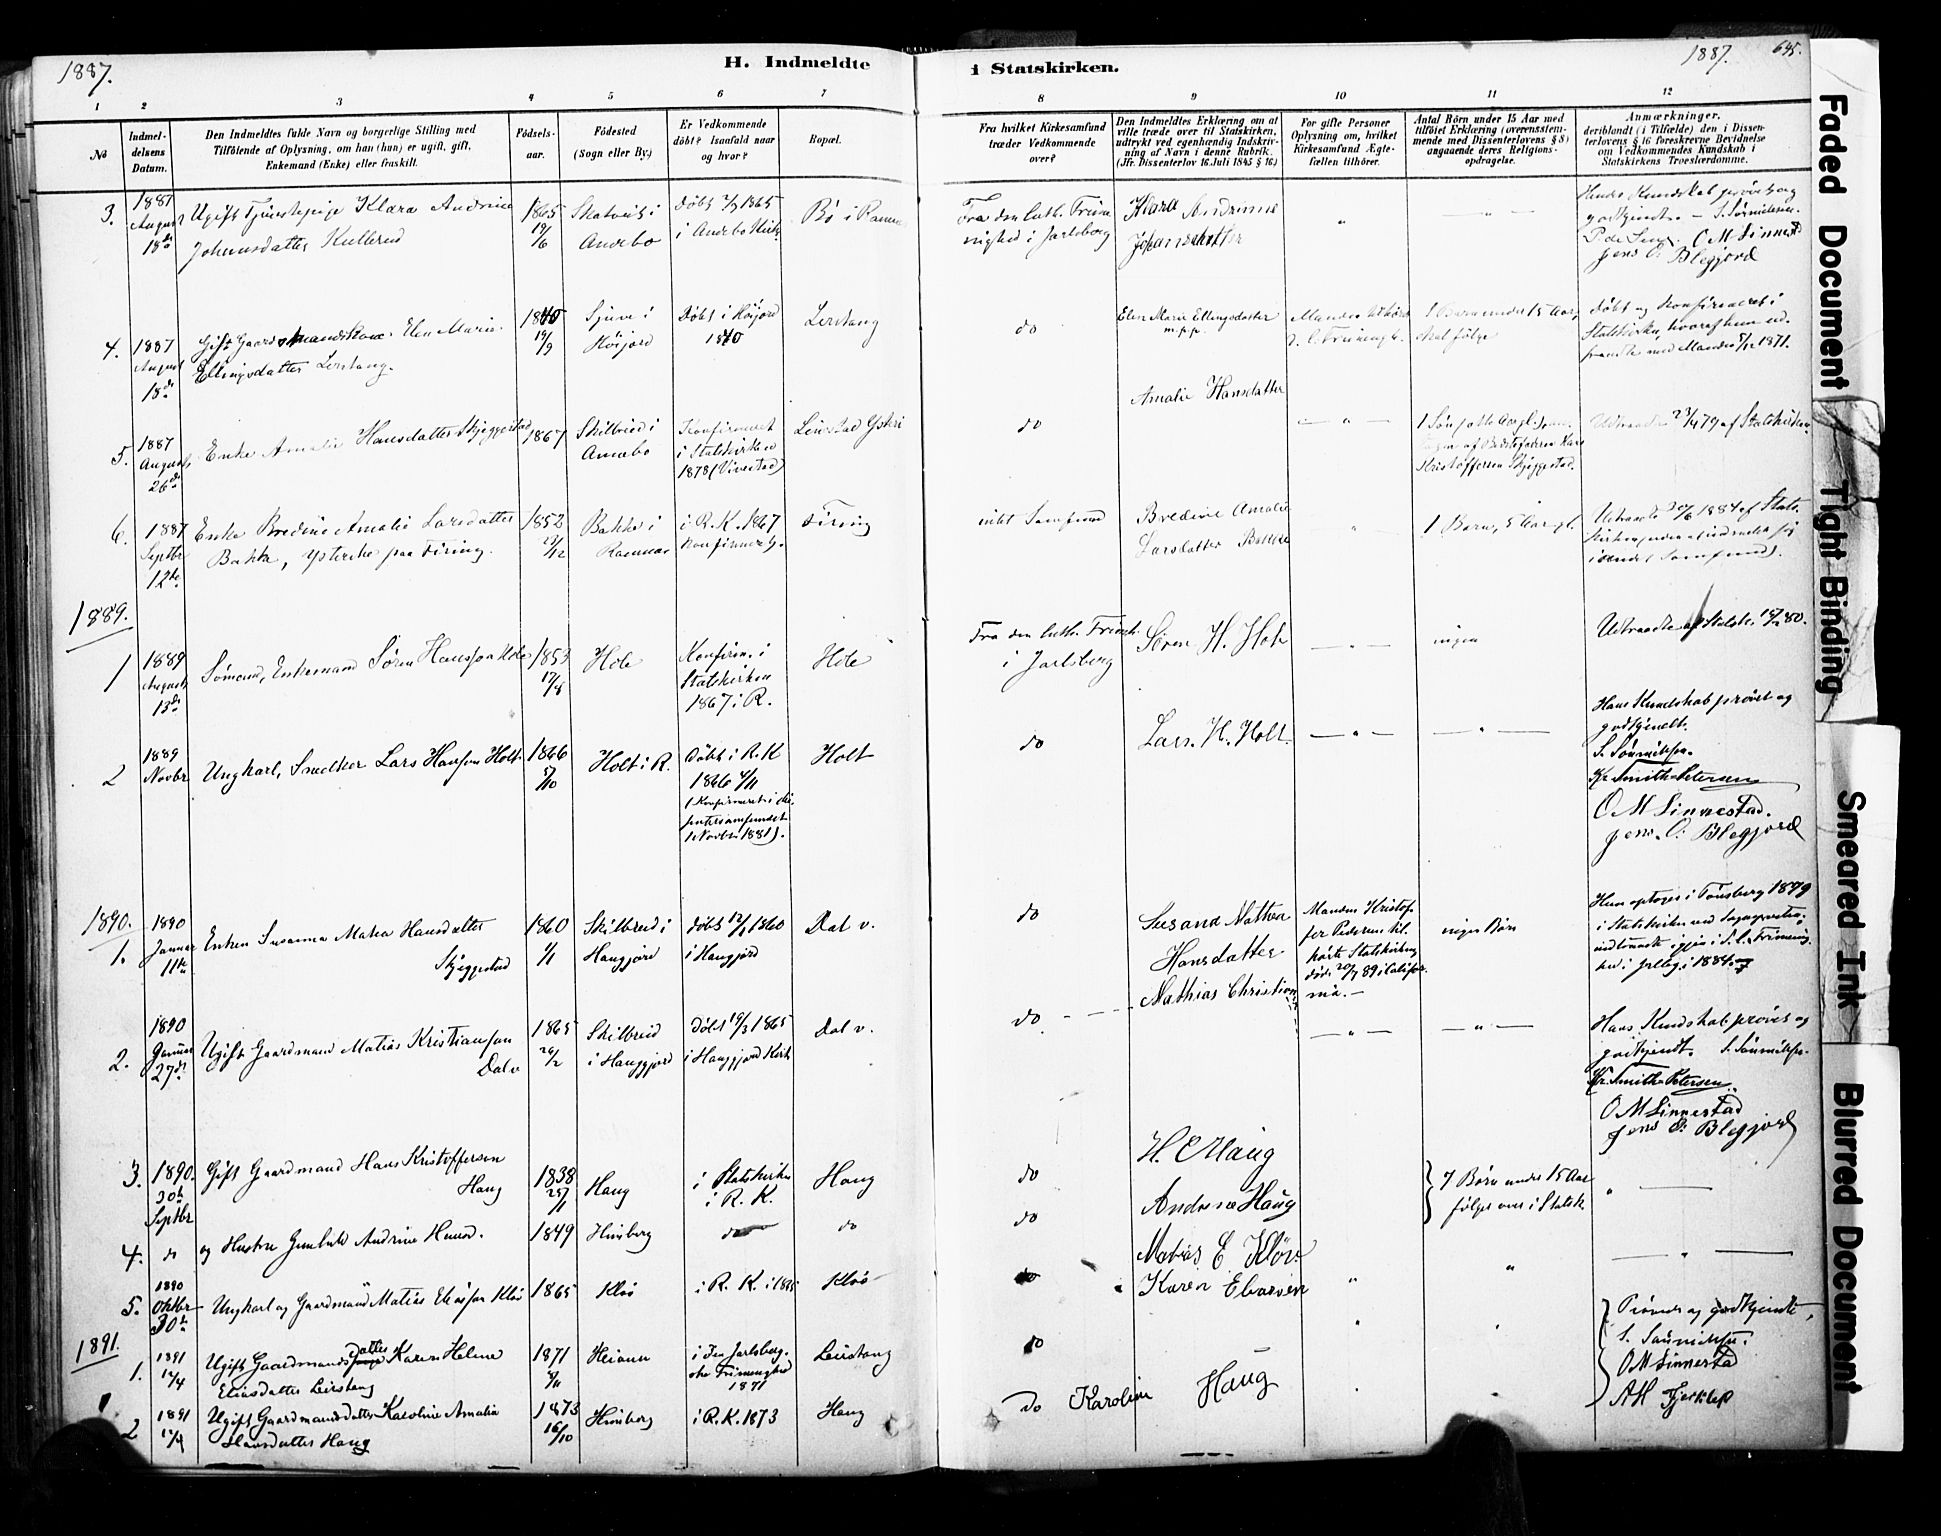 1887.
H. Indmeldte
i Statskirken.
1887.
645.
1 2 3 4 5 6 7 8 9 10 11 12
No
Indmel-
delsens
Datum.
Den Indmeldtes fulde Navn og borgerlige Stilling med
Tilföiende af Oplysning, om han (hun) er ugift, gift,
Enkemand (Enke) eller fraskilt.
Födsels-
aar.
Födested
(Sogn eller By.)
Er Vedkommende
döbt? Isaafald naar
og hvor?
Bopæl.
Fra hvilket Kirkesamfund
træder Vedkommende
over?
Den Indmeldtes Erklæring om at
ville træde over til Statskirken,
udtrykt ved egenhændig Indskriv-
ning af Navn i denne Rubrik.
(Jfr. Dissenterlov 16 Juli 1845 § 16.)
For gifte Personer
Oplysning om, hvilket
Kirkesamfund Ægte-
fællen tilhörer.
Antal Börn under 15 Aar med
tilföiet Erklæring (overensstem-
mende med Dissenterlovens § 8)
angaaende deres Religions-
opdragelse.
Anmærkninger,
deriblandt (i Tilfælde) den i Dissen-
terlovens § 16 foreskrevne Bevidnelse
om Vedkommendes Kundskab i
Statskirkens Troeslærdomme.
3.
1887
August
18de
Ugift Tjenestepige Klara Andrine
Johannsdatter Kullerud
1865
19/6
i
Andebo
Döbt 2/7 1865
i Andebo Kirke
Bö i Ramnes
Fra den luth. Frime
nighed i Jarlsberg
Klara Andrinne
Johansdatter
"
— " —
Hendes Kundskab prövet og
godkjendt. — S. Sörensen.
O M Linnestad
Jens O. Blegjord
4.
1887
August
18de
Gift Gaardmandskone Elen Marie
Ellingsdatter Lerstang.
1840
19/9
Sjuve i
Höijord
Döbt i Höijord
1840
Lerstang
do
Elen Marie Ellingsdatter
m.p.p.
Manden tilhörer
1 Barn under 15 Aar,
skal fölge
Döbt og Konfirmeret i
Statskirken, hvoraf hun ud-
traadte med Manden 5/12 1871.
5.
1887
August
26de
Enke Amalie Hansdatter Skjeggestad
1867
Skilbred i
Andebo
Konfirmeret
i Statskirken
1878 (Vivestad)
do
Amalie Hansdatter
— " —
Kristoffersen Skjeggestad.
Udtraadte 23/4 79 af Statskirken
6.
1887
Septbr
12te
Enke Bredine Amalie Larsdatter
Bakke, paa Firing.
1852
22/12
Bakke i
Ramnes
i R. K. 1867
Konfirmert.
Firing
intet Samfund
Bredine Amalie
Larsdatter Bakke
"
1 Barn, 5 Aar gl.
Udtraadte 20/6 1884 af Stats-
kirken, uden at indmelde sig
i andet Samfund.
1889.
1
1889
August
13de
Sömand, Enkemand Sören Hansson Hole
1853
17/8
Hole
Konfirm. i
Statskirken
1867 i R.
Hole
Fra den luth. Frimh.
i Jarlsberg
Sören H. Hole
— " —
ingen
Udtraadte af Statsk. 80.
2
1889
Novbr
Ungkarl, Snedker Lars Hansson Holt
1866
5/10
Holt i R.
Döbt i R. K
1866 4/11
(Konfirmeret i
Novbr 1881).
Holt
do
Lars. H. Holt.
— " —
— " —
Hans Kundskab prövet og
godkjendt.
Kr. Smith Petersen
O M Linnestad.
Jens. O. Blegjord
1890.
1.
1890
Januar
11te
Enken Susanna Matea Hansdatter
Skjeggestad
1860
1/1
Skilbred i
Haugjord
Döbt 12/1 1860
i Haugjord
Dal v.
do
Susana Mathea
Hansdatter
Manden Kristof
fer Pedersen til
hörte Statskirken,
döde 20/7 89 i Califor
nia. —
ingen Börn
Hun optoges i Tönsberg 1879
i Statskirken ved Sognepræsten,
udtraadte igjen i
hed i Jrlbg. i 1884.
2.
1890
Januar
27de
Ugift Gaardmand Matias Kristianson
Dal v
1865
26/2
Skilbred
i Haugjord
Döbt 19/3 1865
i Haugjord Kirke
Dal v.
do
Mathias Christian
— " —
— " —
Hans Kundskab prövet og
godkjendt.
Kr. Smith Petersen.
O M Linnestad
Jens O. Blegjord
3.
1890.
30te
Septbr
Gift Gaardmand Hans Kristoffersen
Haug
1838
25/1
Haug
i Statskirken
i R. K.
Haug
do
H. C Haug
7 Börn under 15 Aar
fölger over i Statsk.
" —
4.
do
og Hustru Gunhild Andrine Hansd.
1849
Himberg
do
do
do
Andrine Haug
— " —
5.
1890
Oktbr
30te
Ungkarl og Gaardmand Matias Eliasson Klöv
1865
Klöv
i R. K. i 1865
Klöv
do
Matias E. Klöv
"
"
1891.
1.
1891
12/4
Ugift Gaardmandsdatter Karen Helene
Eliasdatter Leirstang
1871
8/11
i den Jarlsberg-
ske Frimenghed
1871
Leirstang
do
Karen Eliasen
"
"
Prövede og godkjendte,
O M Linnestad
2
1891
12/4
Ugift Gaardmandsdatter Karoline Amalia
Hansdatter Haug
1873
16/10
Himberg
i R. K. 1873
Haug
do
Karoline Haug
"
Faded Document
Tight Binding
Smeared Ink
Blurred Document